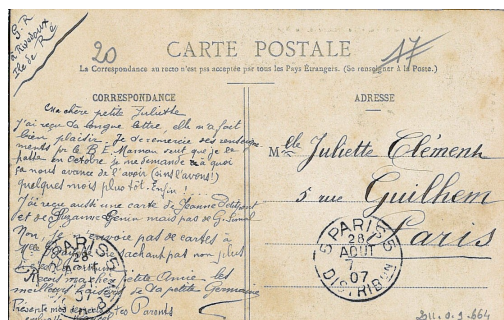 G. R
à Rivedoux
Ile de Ré
20
17
CARTE POSTALE
La Correspondance au recto n'est pas acceptée par tous les Pays Étrangers. (Se renseigner à la Poste.)
CORRESPONDANCE
Ma chère petite Juliette
J'ai reçu ta longue lettre, elle m'a fait
bien plaisir. Je te remercie des renseigne
ments pr le B.E. Maman veut que je le
passe en Octobre je me demande à quoi
ça nous avance de l'avoir (si nous l'avons!)
quelques mois plus tôt. Enfin!
J'ai reçu aussi une carte de Jeanne
et de Suzanne Genin mais pas de G.
Non, je n'envoie pas de cartes à
Melle
sachant pas non plus
petite Amie les
meilleurs baisers de ta petite Germaine
Présente mes
tes Parents
ADRESSE
Melle Juliette Clément
5 rue Guilhem
Paris
5 PARIS 5
28
AOUT
07
DISTRIBON
PARIS
28
07
2011.0.9.664